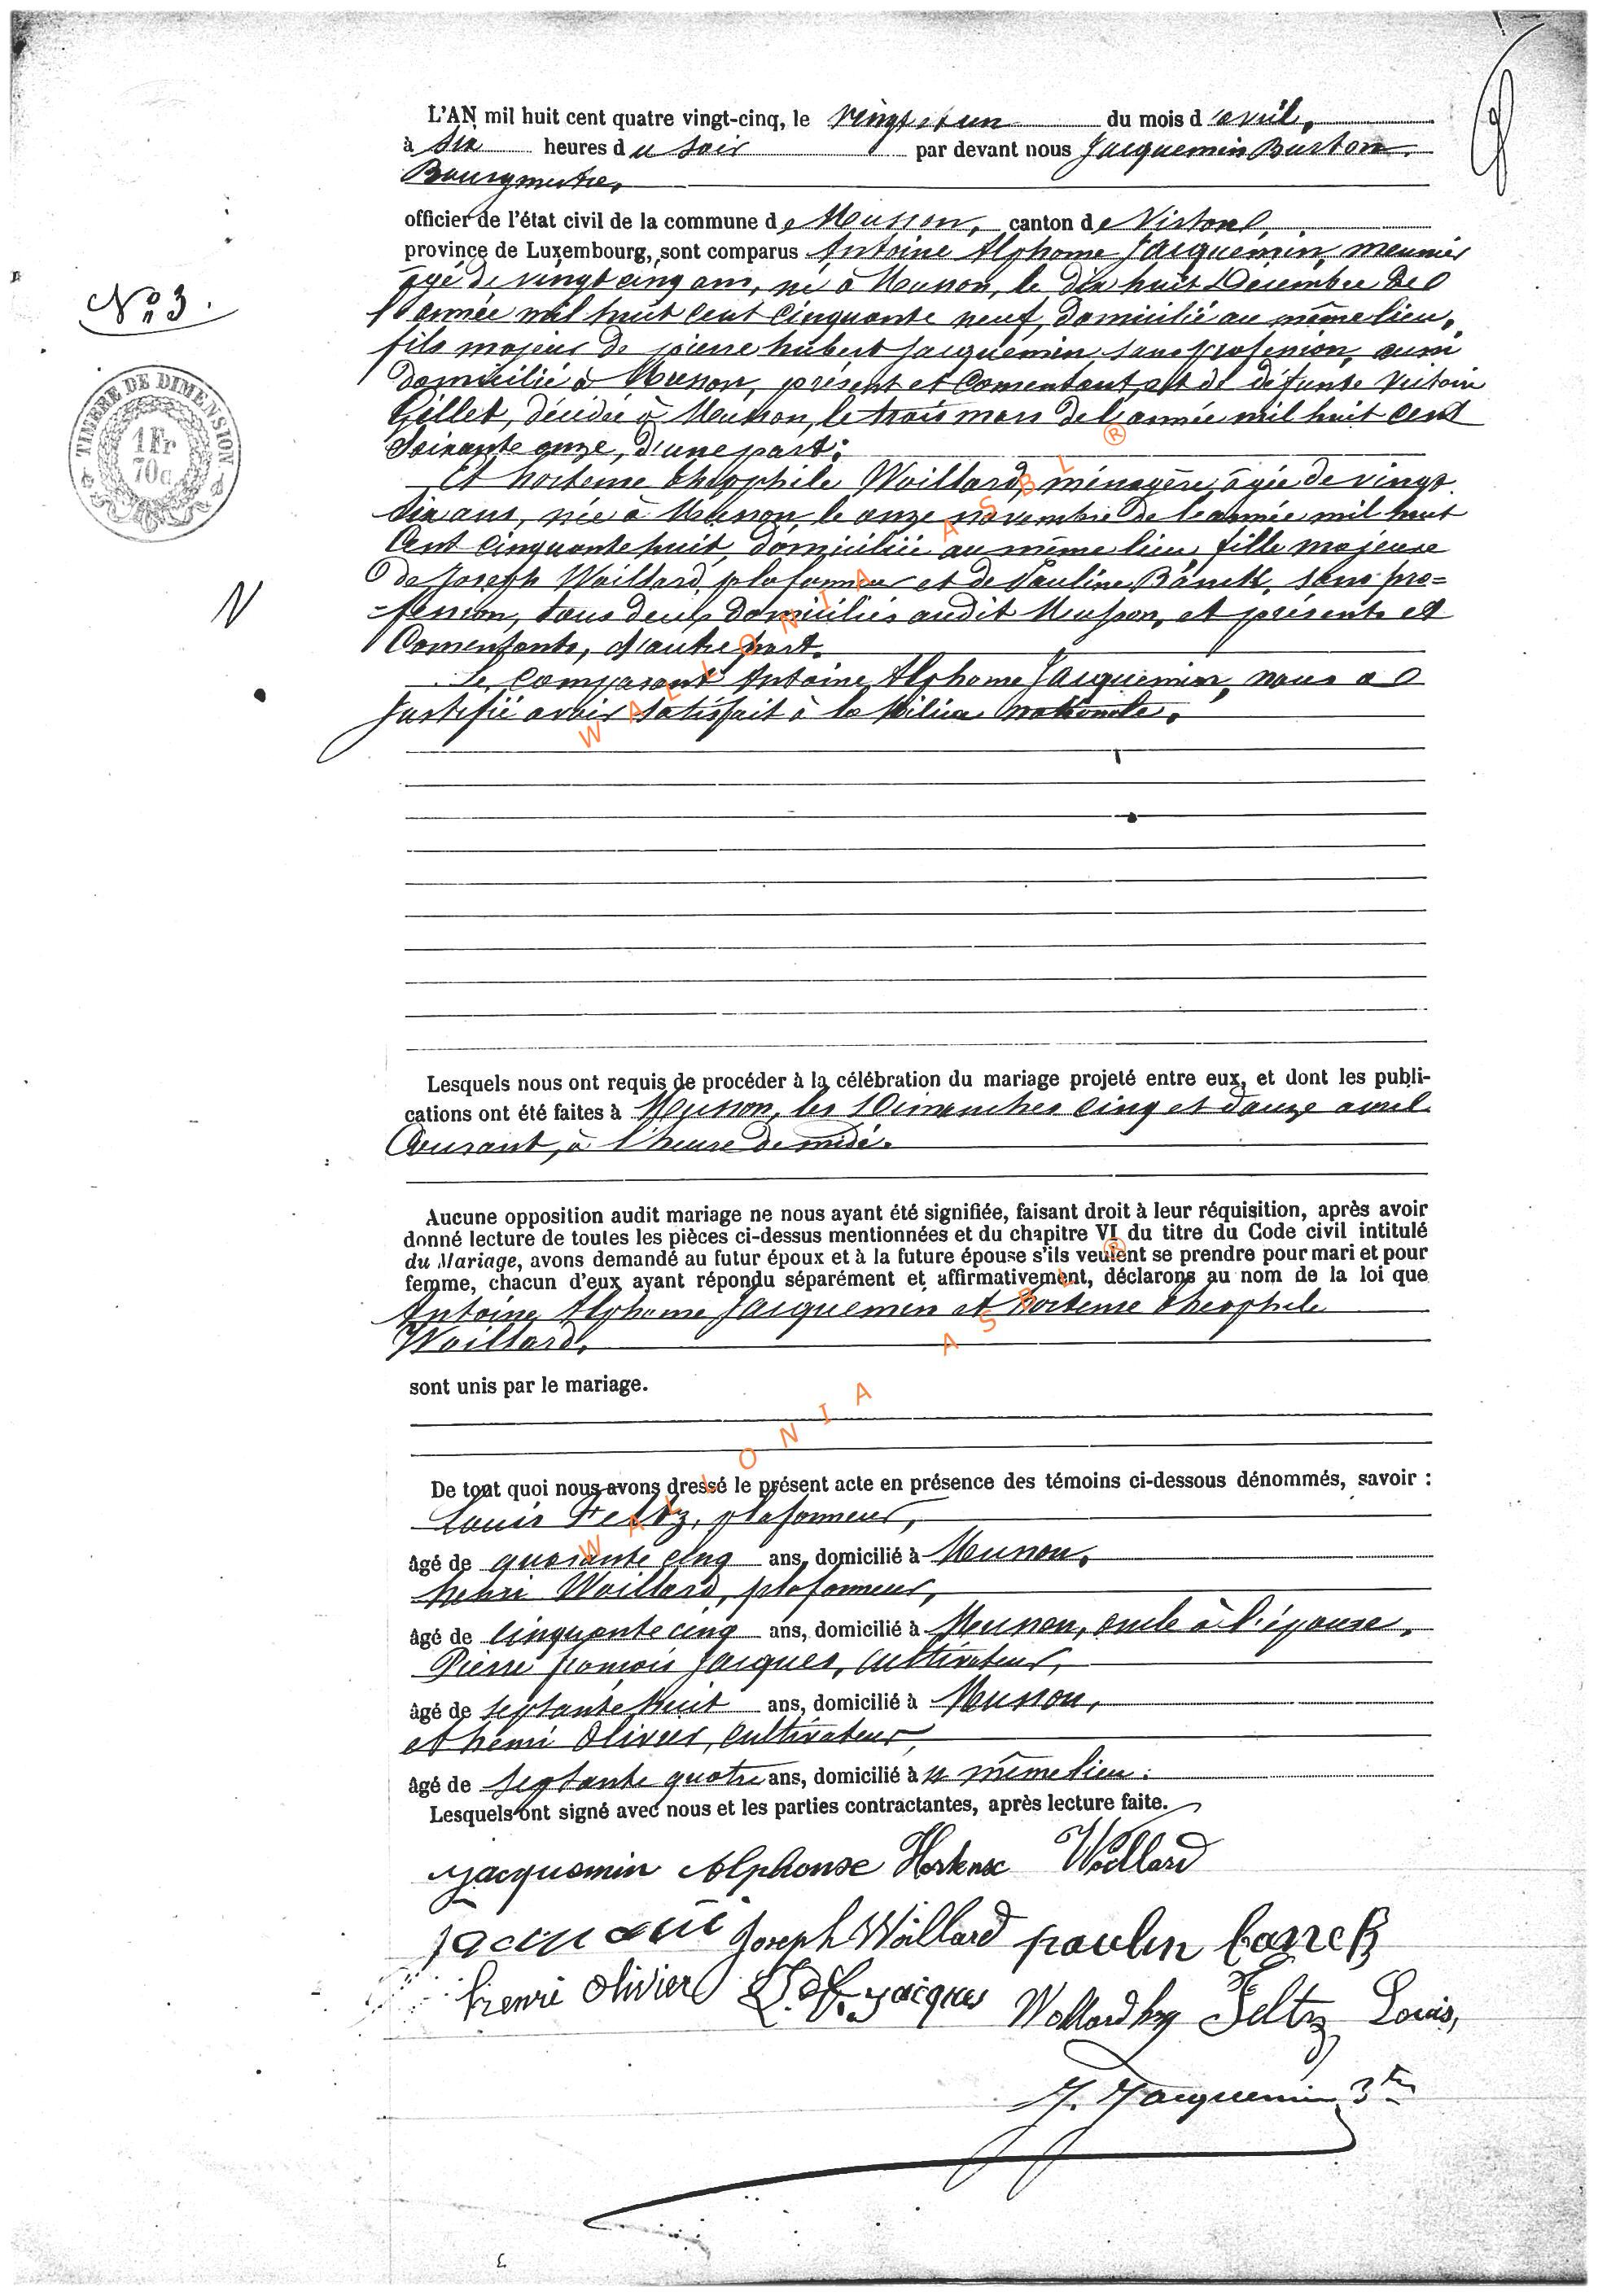 L'AN mil huit cent quatre vingt-cinq, le vingt et un du mois d'avril,
à six heures du soir par devant nous Jacquemin Buston
Bourgmestre,
officier de l'état civil de la commune de Musson, canton de Virton,
province de Luxembourg, sont comparus Antoine Alphonse Jacquemin, meunier
âgé de vingt cinq ans, né à Musson, le dix huit Décembre de
l'année mil huit cent cinquante neuf, domicilié au même lieu,
fils majeur de pierre hubert Jacquemin, sans profession, aussi
domicilié à Musson, présent et consentant, et de défunte Victoire
Gillet, décédée à Musson, le trois mars de l'année mil huit cent
soixante onze, d'une part;
N° 3.
TIMBRE DE DIMENSION
1 Fr
70c
Et hortense théophile Woillard, ménagère, âgée de vingt
six ans, née à Musson, le onze novembre de l'année mil huit
cent cinquante huit, domiciliée au même lieu, fille majeure
de Joseph Woillard, plafonneur et de Pauline Banck, sans pro=
=fession, tous deux domiciliés audit Musson, et présents et
consentants, d'autre part.
Le comparant Antoine Alphonse Jacquemin, nous a
justifié avoir satisfait à la Milice nationale.
N
WALLONIA ASBL ®
Lesquels nous ont requis de procéder à la célébration du mariage projeté entre eux, et dont les publi-
cations ont été faites à Musson, les Dimanches cinq et douze avril
courant, à l'heure de midi.
Aucune opposition audit mariage ne nous ayant été signifiée, faisant droit à leur réquisition, après avoir
donné lecture de toutes les pièces ci-dessus mentionnées et du chapitre VI du titre du Code civil intitulé
du Mariage, avons demandé au futur époux et à la future épouse s'ils veulent se prendre pour mari et pour
femme, chacun d'eux ayant répondu séparément et affirmativement, déclarons au nom de la loi que
Antoine Alphonse Jacquemin et hortense théophile
Woillard,
sont unis par le mariage.
WALLONIA ASBL ®
De tout quoi nous avons dressé le présent acte en présence des témoins ci-dessous dénommés, savoir :
Louis Feltz, plafonneur,
âgé de quarante cinq ans, domicilié à Musson,
henri Woillard, plafonneur,
âgé de cinquante cinq ans, domicilié à Musson, oncle à l'épouse,
Pierre françois Jacques, cultivateur,
âgé de septante huit ans, domicilié à Musson,
et henri Olivier, cultivateur,
âgé de septante quatre ans, domicilié à même lieu.
Lesquels ont signé avec nous et les parties contractantes, après lecture faite.
Jacquemin Alphonse Hortense Woillard
Joseph Woillard paulin banck
henri olivier Jacques Woillard Feltz Louis,
J. Jacquemin